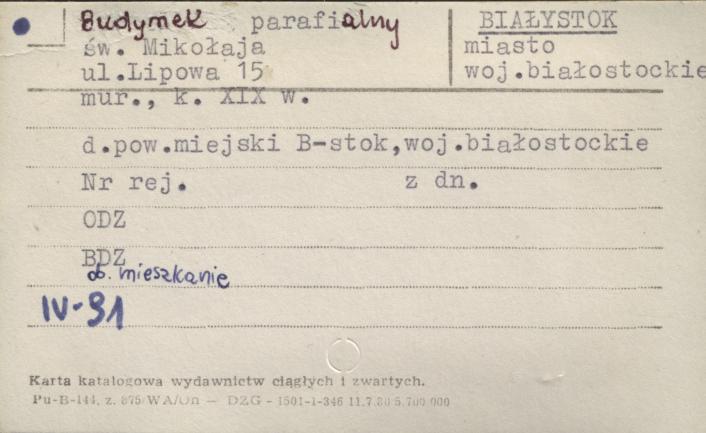 Budynek parafialny BIAŁYSTOK
św. Mikołaja miasto
ul.Lipowa 15 woj.białostockie
mur., k. XIX w.
d.pow.miejski B-stok,woj.białostockie
Nr rej. z dn.
ODZ
BDZ
ob. mieszkanie
IV-91
Karta katalogowa wydawnictw ciągłych i zwartych.
Pu-B-144, z. 875/WA/On — DZG - 1501-1-346 11.7.80 5.700.000